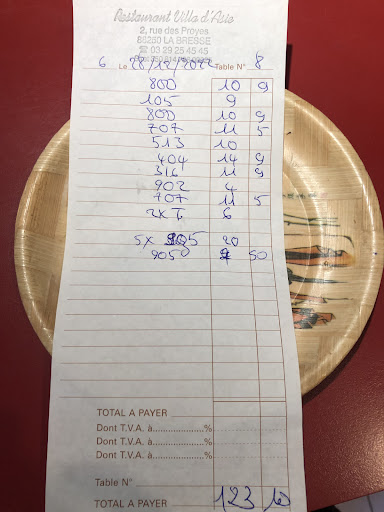 Restaurant Villa d'Asie
2, rue des Proyes
88250 LA BRESSE
☎ 03 29 25 45 45
6 Le 28/12/2022 Table N° 8
800 10 9
105 9
800 10 9
707 11 5
513 10
404 14 9
316 11 9
902 4
707 11 5
2x T 6
5x 205 20
905 50
TOTAL A PAYER
Dont T.V.A. à....................%
Dont T.V.A. à....................%
Dont T.V.A. à....................%
Table N°
TOTAL A PAYER 123 10